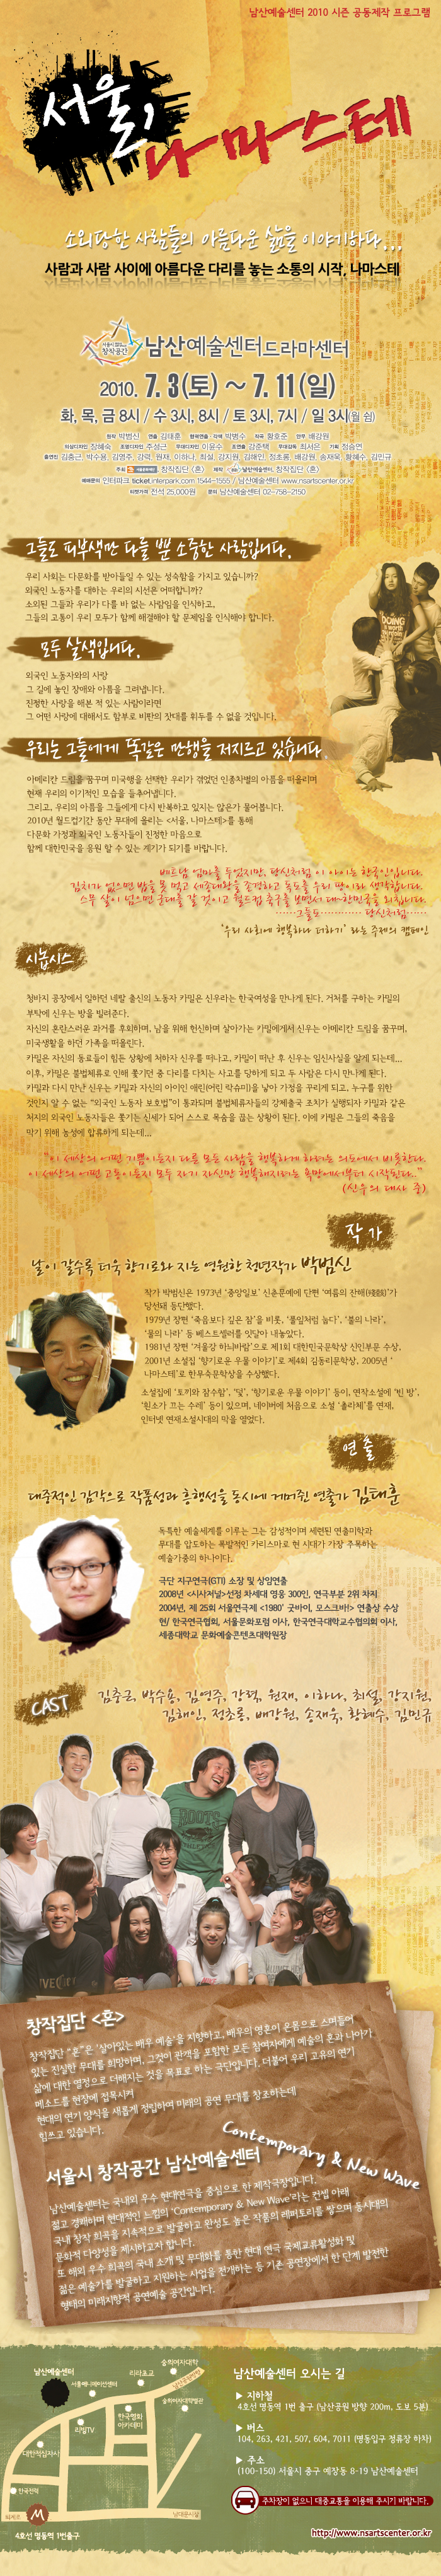 남산예술센터 2010 시즌 공동제작 프로그램
서울,
나마스테
소외당한 사람들의 아름다운 삶을 이야기하다...
사람과 사람 사이에 아름다운 다리를 놓는 소통의 시작, 나마스테
서울시 창작공간 남산예술센터드라마센터
2010. 7. 3(토) ~ 7. 11(일)
화, 목, 금 8시 / 수 3시, 8시 / 토 3시, 7시 / 일 3시(월 쉼)
원작 박범신 연출 김태훈 협력연출·각색 박병수 작곡 황호준 안무 배강원
의상디자인 장혜숙 조명디자인 주성근 무대디자인 이윤수 조연출 강준택 무대감독 최서은 기획 정승연
출연진 김충근, 박수용, 김영주, 강력, 원재, 이하나, 최설, 강지원, 김해인, 정초롱, 배강원, 송재욱, 황혜수, 김민규
주최 서울문화재단, 창작집단 〈혼〉 제작 남산예술센터, 창작집단 〈혼〉
예매문의 인터파크 ticket.interpark.com 1544-1555 / 남산예술센터 www.nsartscenter.or.kr
티켓가격 전석 25,000원 문의 남산예술센터 02-758-2150
그들도 피부색만 다를 뿐 소중한 사람입니다.
우리 사회는 다문화를 받아들일 수 있는 성숙함을 가지고 있습니까?
외국인 노동자를 대하는 우리의 시선은 어떠합니까?
소외된 그들과 우리가 다를 바 없는 사람임을 인식하고,
그들의 고통이 우리 모두가 함께 해결해야 할 문제임을 인식해야 합니다.
모두 살색입니다.
외국인 노동자와의 사랑
그 길에 놓인 장애와 아픔을 그려냅니다.
진정한 사랑을 해본 적 있는 사람이라면
그 어떤 사랑에 대해서도 함부로 비판의 잣대를 휘두를 수 없을 것입니다.
우리는 그들에게 똑같은 만행을 저지르고 있습니다.
아메리칸 드림을 꿈꾸며 미국행을 선택한 우리가 겪었던 인종차별의 아픔을 떠올리며
현재 우리의 이기적인 모습을 들추어냅니다.
그리고, 우리의 아픔을 그들에게 다시 반복하고 있지는 않은가 물어봅니다.
2010년 월드컵기간 동안 무대에 올리는 <서울, 나마스테>를 통해
다문화 가정과 외국인 노동자들이 진정한 마음으로
함께 대한민국을 응원 할 수 있는 계기가 되기를 바랍니다.
베트남 엄마를 두었지만, 당신처럼 이 아이는 한국인입니다.
김치가 없으면 밥을 못 먹고 세종대왕을 존경하고 독도를 우리 땅이라 생각합니다.
스무 살이 넘으면 군대를 갈 것이고 월드컵 축구를 보면서 대~한민국을 외칩니다.
……그들도………… 당신처럼……
'우리 사회에 행복하나 더하기' 라는 주제의 캠페인
시놉시스
청바지 공장에서 일하던 네팔 출신의 노동자 카밀은 신우라는 한국여성을 만나게 된다. 거처를 구하는 카밀의
부탁에 신우는 방을 빌려준다.
자신의 혼란스러운 과거를 후회하며, 남을 위해 헌신하며 살아가는 카밀에게서 신우는 아메리칸 드림을 꿈꾸며,
미국생활을 하던 가족을 떠올린다.
카밀은 자신의 동료들이 힘든 상황에 처하자 신우를 떠나고, 카밀이 떠난 후 신우는 임신사실을 알게 되는데...
이후, 카밀은 불법체류로 인해 쫓기던 중 다리를 다치는 사고를 당하게 되고 두 사람은 다시 만나게 된다.
카밀과 다시 만난 신우는 카밀과 자신의 아이인 애린(어린 락슈미)을 낳아 가정을 꾸리게 되고, 누구를 위한
것인지 알 수 없는 "외국인 노동자 보호법"이 통과되며 불법체류자들의 강제출국 조치가 실행되자 카밀과 같은
처지의 외국인 노동자들은 쫓기는 신세가 되어 스스로 목숨을 끊는 상황이 된다. 이에 카밀은 그들의 죽음을
막기 위해 농성에 합류하게 되는데...
"이 세상의 어떤 기쁨이든지 다른 모든 사람을 행복하게 하려는 의도에서 비롯한다.
이 세상의 어떤 고통이든지 모두 자기 자신만 행복해지려는 욕망에서부터 시작한다.."
(신우의 대사 중)
작가
날이 갈수록 더욱 향기로와 지는 영원한 청년작가 박범신
작가 박범신은 1973년 '중앙일보' 신춘문예에 단편 '여름의 잔해(殘骸)'가
당선돼 등단했다.
1979년 장편 '죽음보다 깊은 잠'을 비롯, '풀잎처럼 눕다', '불의 나라',
'물의 나라' 등 베스트셀러를 잇달아 내놓았다.
1981년 장편 '겨울강 하늬바람'으로 제1회 대한민국문학상 신인부문 수상,
2001년 소설집 '향기로운 우물 이야기'로 제4회 김동리문학상, 2005년 '
나마스테'로 한무숙문학상을 수상했다.
소설집에 '토끼와 잠수함', '덫', '향기로운 우물 이야기' 등이, 연작소설에 '빈 방',
'흰소가 끄는 수레' 등이 있으며, 네이버에 처음으로 소설 '촐라체'를 연재,
인터넷 연재소설시대의 막을 열었다.
연출
대중적인 감각으로 작품성과 흥행성을 동시에 거머쥔 연출가 김태훈
독특한 예술세계를 이루는 그는 감성적이며 세련된 연출미학과
무대를 압도하는 폭발적인 카리스마로 현 시대가 가장 주목하는
예술가중의 하나이다.
극단 지구연극(GTI) 소장 및 상임연출
2008년 <시사저널>선정 차세대 영웅 300인, 연극부분 2위 차지
2004년, 제 25회 서울연극제 <1980' 굿바이, 모스크바> 연출상 수상
현/ 한국연극협회, 서울문화포럼 이사, 한국연극대학교수협의회 이사,
세종대학교 문화예술콘텐츠대학원장
CAST
김충근, 박수용, 김영주, 강력, 원재, 이하나, 최설, 강지원,
김해인, 정초롱, 배강원, 송재욱, 황혜수, 김민규
창작집단 <혼>
창작집단 "혼"은 '살아있는 배우 예술'을 지향하고, 배우의 영혼이 온몸으로 스며들어
있는 진실한 무대를 희망하며, 그것이 관객을 포함한 모든 참여자에게 예술의 혼과 나아가
삶에 대한 열정으로 더해지는 것을 목표로 하는 극단입니다. 더불어 우리 고유의 연기
메소드를 현장에 접목시켜
현대의 연기 양식을 새롭게 정립하며 미래의 공연 무대를 창조하는데
힘쓰고 있습니다.
Contemporary & New Wave
서울시 창작공간 남산예술센터
남산예술센터는 국내외 우수 현대연극을 중심으로 한 제작극장입니다.
젊고 경쾌하며 현대적인 느낌의 'Contemporary & New Wave'라는 컨셉 아래
국내 창작 희곡을 지속적으로 발굴하고 완성도 높은 작품의 레퍼토리를 쌓으며 동시대의
문화적 다양성을 제시하고자 합니다.
또 해외 우수 희곡의 국내 소개 및 무대화를 통한 현대 연극 국제교류활성화 및
젊은 예술가를 발굴하고 지원하는 사업을 전개하는 등 기존 공연장에서 한 단계 발전한
형태의 미래지향적 공연예술 공간입니다.
숭의여자대학
남산예술센터
리라초교
서울애니메이션센터
숭의여자대학별관
리빙TV
한국영화
아카데미
대한적십자사
한국전력
퇴계로
남대문시장
4호선 명동역 1번출구
남산예술센터 오시는 길
▶ 지하철
4호선 명동역 1번 출구 (남산공원 방향 200m, 도보 5분)
▶ 버스
104, 263, 421, 507, 604, 7011 (명동입구 정류장 하차)
▶ 주소
(100-150) 서울시 중구 예장동 8-19 남산예술센터
주차장이 없으니 대중교통을 이용해 주시기 바랍니다.
http://www.nsartscenter.or.kr